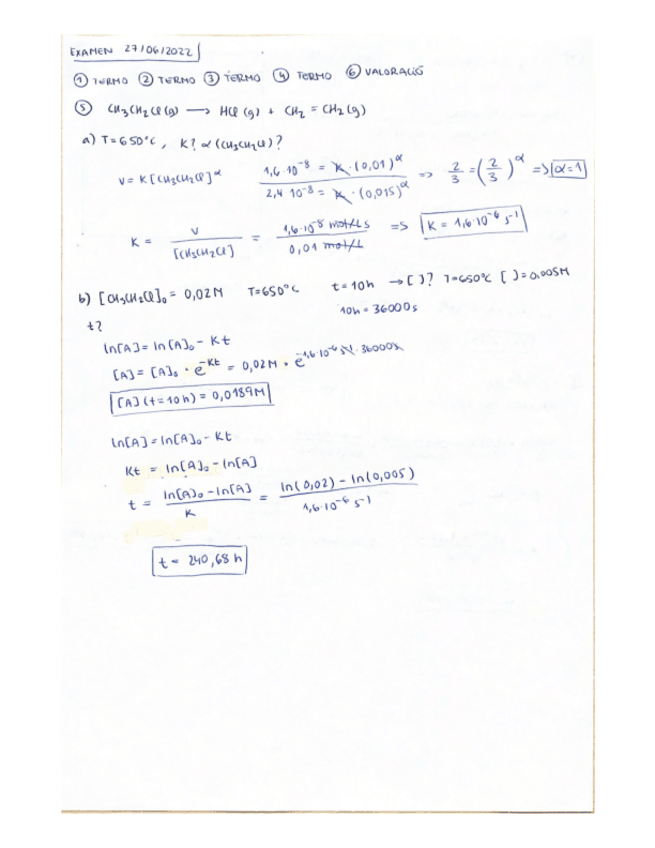 EXAMEN 27/06/2022
① TERMO ② TERMO ③ TERMO ④ TERMO ⑥ VALORACIÓ
⑤ CH₃CH₂Cl(g) → HCl(g) + CH₂=CH₂(g)
a) T=650°C, K? α(CH₃CH₂Cl)?
v=K[CH₃CH₂Cl]^α 1,6·10⁻⁸ = K·(0,01)^α / 2,4·10⁻⁸ = K·(0,015)^α => 2/3 = (2/3)^α => α=1
K = v/[CH₃CH₂Cl] = 1,6·10⁻⁸ mol/L s / 0,01 mol/L => K = 1,6·10⁻⁶ s⁻¹
b) [CH₃CH₂Cl]₀ = 0,02M T=650°C t=10h → [ ]? T=650°C [ ]=0,005M
10h = 36000s
t?
ln[A]=ln[A]₀-Kt
[A]=[A]₀·e^-Kt = 0,02M·e^-1,6·10⁻⁶ s⁻¹·36000s
[A](t=10h) = 0,0189M
ln[A]=ln[A]₀-Kt
Kt = ln[A]₀-ln[A]
t = ln[A]₀-ln[A] / K = ln(0,02)-ln(0,005) / 1,6·10⁻⁶ s⁻¹
t = 240,68 h